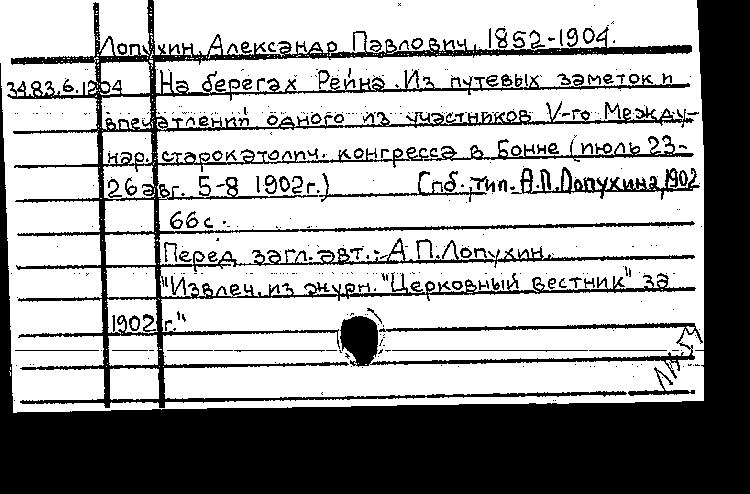 Лопухин, Александр Павлович, 1852-1904.
34.83.6.1204 На берегах Рейна. Из путевых заметок и
впечатлений одного из участников V-го Между-
нар. старокатолич. конгресса в Бонне (июль 23-
26 авг. 5-8 1902 г.) Спб., тип. А.П. Лопухина, 1902
66 с.
Перед загл. авт.: А.П.Лопухин.
"Извлеч. из журн. "Церковный вестник" за
1902 г."